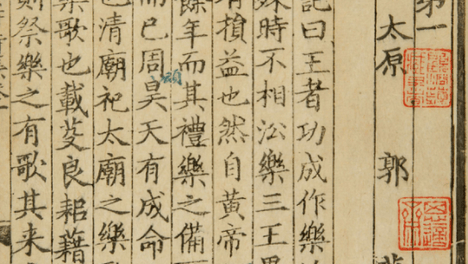 第一
太原 郭
記曰王者功成作樂
殊時不相㳂樂三王異
有損益也然自黃帝
餘年而其禮樂之備
而已周頌昊天有成命
也清廟祀太廟之樂歌
樂歌也載芟良耜藉
則祭樂之有歌其來